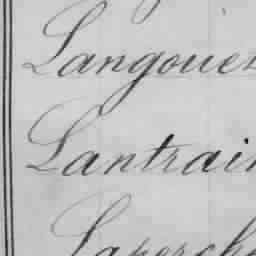 Langoue
Lantrai
Laperche